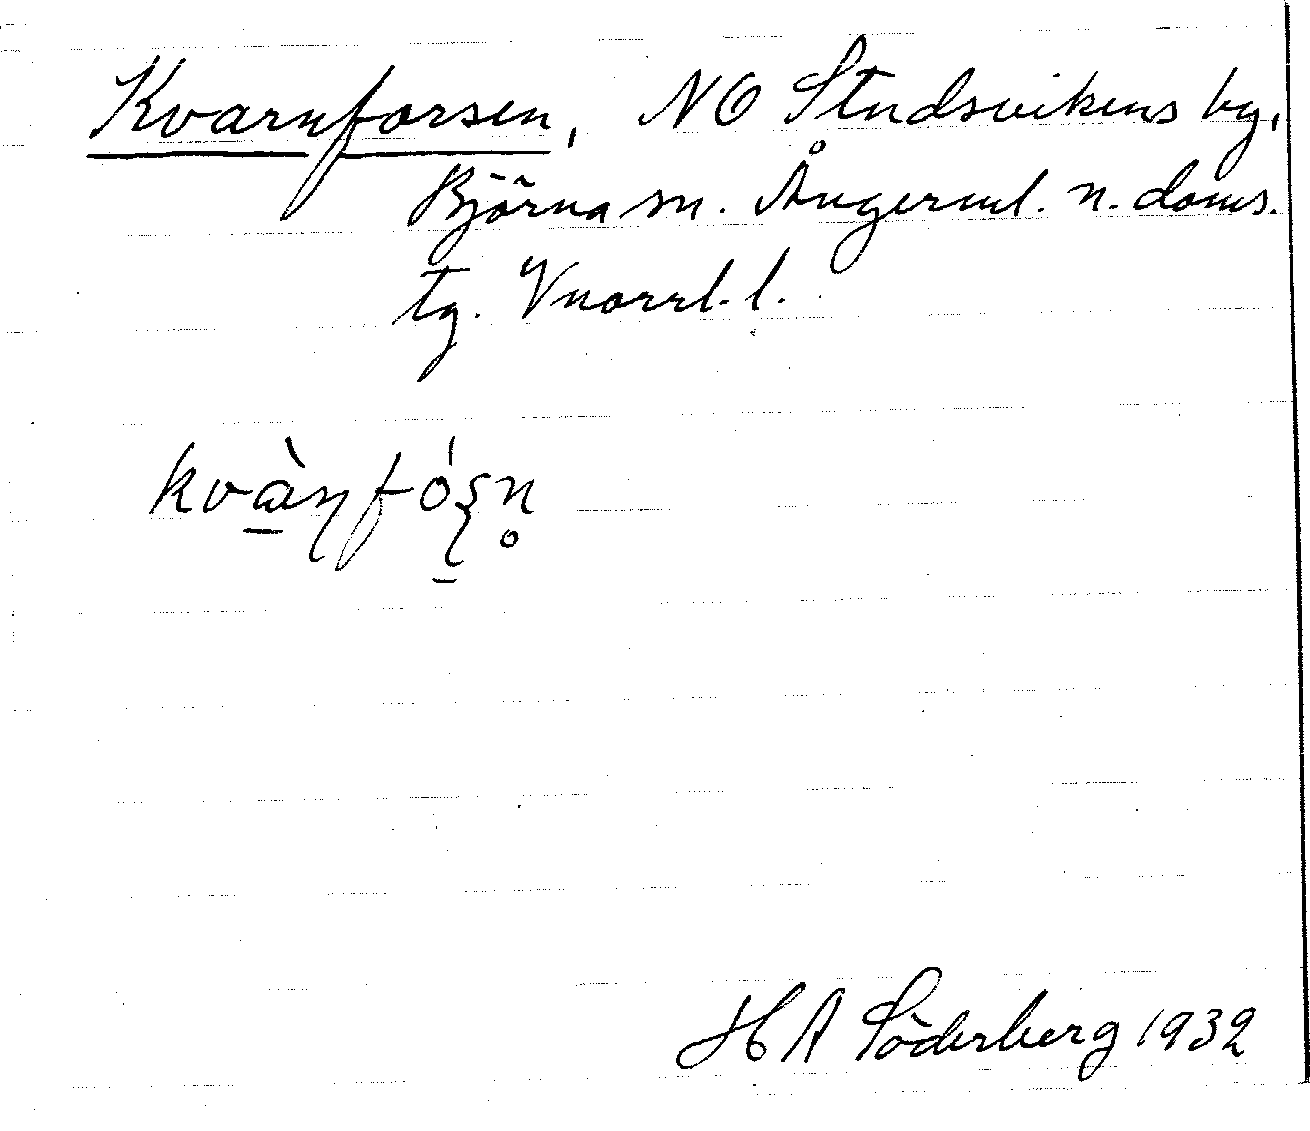 Kvarnforsen, NO Studsvikens by,
Björna sn. Ångerml. n. doms.
tg. Vnorrl. l.
kvà̱ɳfó̱ʂn̥
H A Söderberg 1932